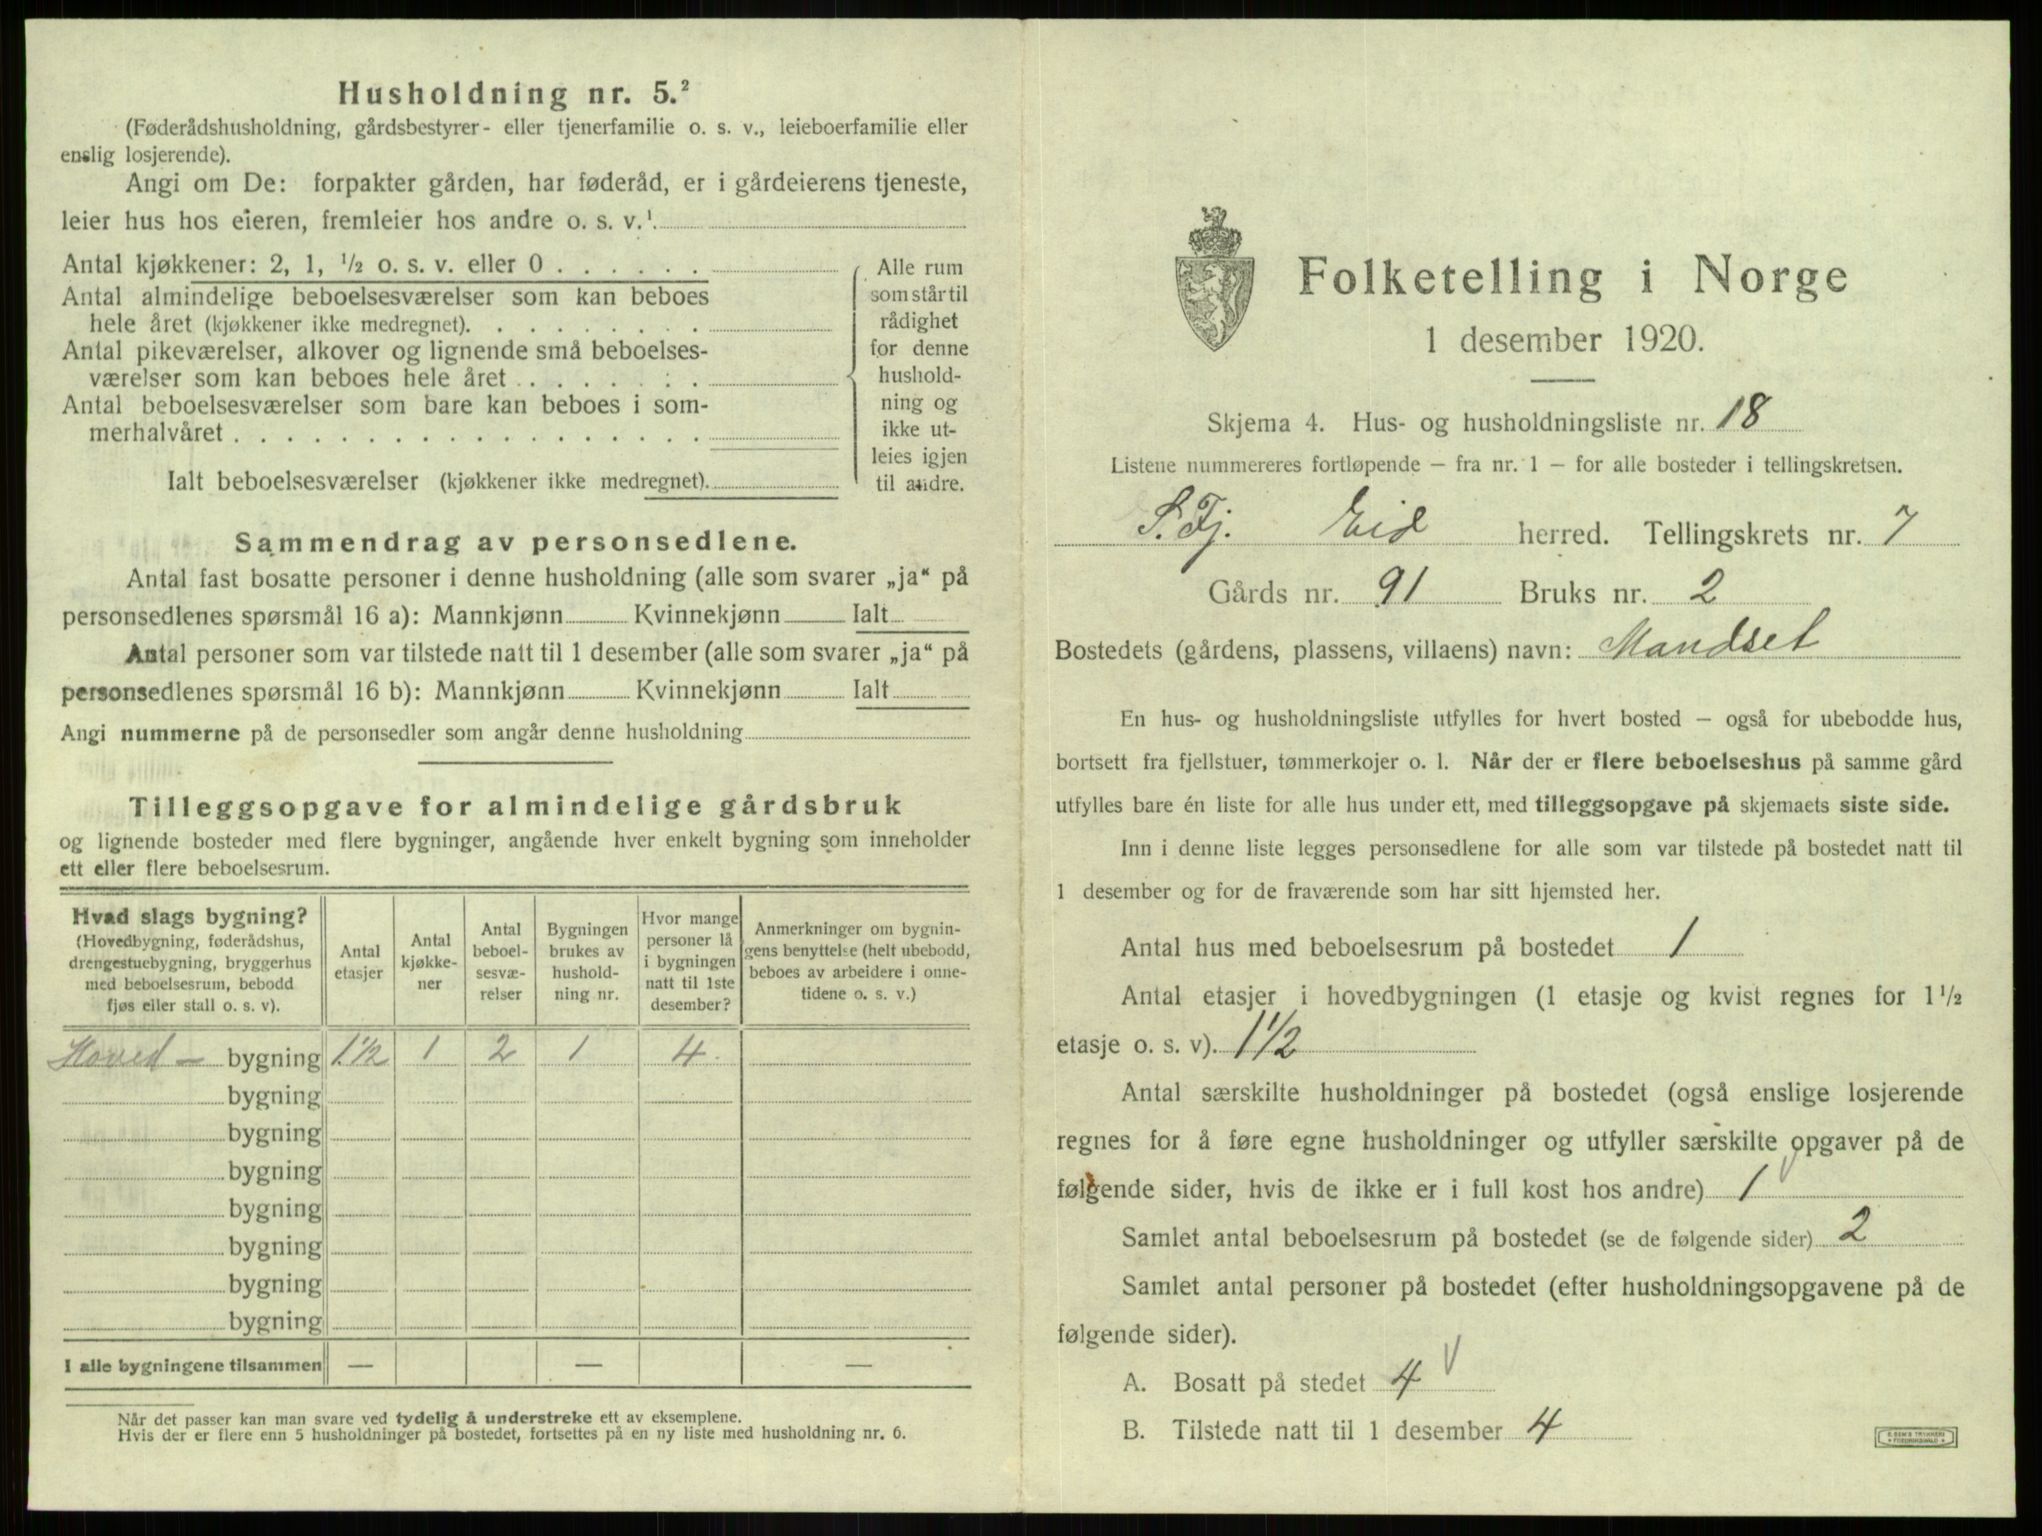 Husholdning nr. 5.²
(Føderådshusholdning, gårdsbestyrer- eller tjenerfamilie o. s. v., leieboerfamilie eller
enslig losjerende).
Angi om De: forpakter gården, har føderåd, er i gårdeierens tjeneste,
leier hus hos eieren, fremleier hos andre o. s. v.¹
Antal kjøkkener: 2, 1, ½ o. s. v. eller 0 . . . . . .
Antal almindelige beboelsesværelser som kan beboes
hele året (kjøkkener ikke medregnet). . . . . . . . .
Antal pikeværelser, alkover og lignende små beboelses-
værelser som kan beboes hele året . . . . . . .
Antal beboelsesværelser som bare kan beboes i som-
merhalvåret . . . . . . . . . . . . . . . . . .
Ialt beboelsesværelser (kjøkkener ikke medregnet).
Alle rum
som står til
rådighet
for denne
hushold-
ning og
ikke ut-
leies igjen
til andre.
Sammendrag av personsedlene.
Antal fast bosatte personer i denne husholdning (alle som svarer „ja“ på
personsedlenes spørsmål 16 a): Mannkjønn Kvinnekjønn Ialt
Antal personer som var tilstede natt til 1 desember (alle som svarer „ja“ på
personsedlenes spørsmål 16 b): Mannkjønn Kvinnekjønn Ialt
Angi nummerne på de personsedler som angår denne husholdning
Tilleggsopgave for almindelige gårdsbruk
og lignende bosteder med flere bygninger, angående hver enkelt bygning som inneholder
ett eller flere beboelsesrum.
Hvad slags bygning?
(Hovedbygning, føderådshus,
drengestuebygning, bryggerhus
med beboelsesrum, bebodd
fjøs eller stall o. s. v).
Antal
etasjer
Antal
kjøkke-
ner
Antal
beboel-
sesvæ-
relser
Bygningen
brukes av
hushold-
ning nr.
Hvor mange
personer lå
i bygningen
natt til 1ste
desember?
Anmerkninger om bygnin-
gens benyttelse (helt ubebodd,
beboes av arbeidere i onne-
tidene o. s. v.)
Hoved- bygning 1½ 1 2 1 4
bygning
bygning
bygning
bygning
bygning
bygning
bygning
I alle bygningene tilsammen — — —
Når det passer kan man svare ved tydelig å understreke ett av eksemplene.
Hvis der er flere enn 5 husholdninger på bostedet, fortsettes på en ny liste med husholdning nr. 6.
Folketelling i Norge
1 desember 1920.
Skjema 4. Hus- og husholdningsliste nr. 18
Listene nummereres fortløpende – fra nr. 1 – for alle bosteder i tellingskretsen.
S. Fj. Eid herred. Tellingskrets nr. 7
Gårds nr. 91 Bruks nr. 2
Bostedets (gårdens, plassens, villaens) navn: Mandset
En hus- og husholdningsliste utfylles for hvert bosted – også for ubebodde hus,
bortsett fra fjellstuer, tømmerkojer o. l. Når der er flere beboelseshus på samme gård
utfylles bare én liste for alle hus under ett, med tilleggsopgave på skjemaets siste side.
Inn i denne liste legges personsedlene for alle som var tilstede på bostedet natt til
1 desember og for de fraværende som har sitt hjemsted her.
Antal hus med beboelsesrum på bostedet 1
Antal etasjer i hovedbygningen (1 etasje og kvist regnes for 1½
etasje o. s. v). 1½
Antal særskilte husholdninger på bostedet (også enslige losjerende
regnes for å føre egne husholdninger og utfyller særskilte opgaver på de
følgende sider, hvis de ikke er i full kost hos andre) 1
Samlet antal beboelsesrum på bostedet (se de følgende sider) 2
Samlet antal personer på bostedet (efter husholdningsopgavene på de
følgende sider).
A. Bosatt på stedet 4
B. Tilstede natt til 1 desember 4